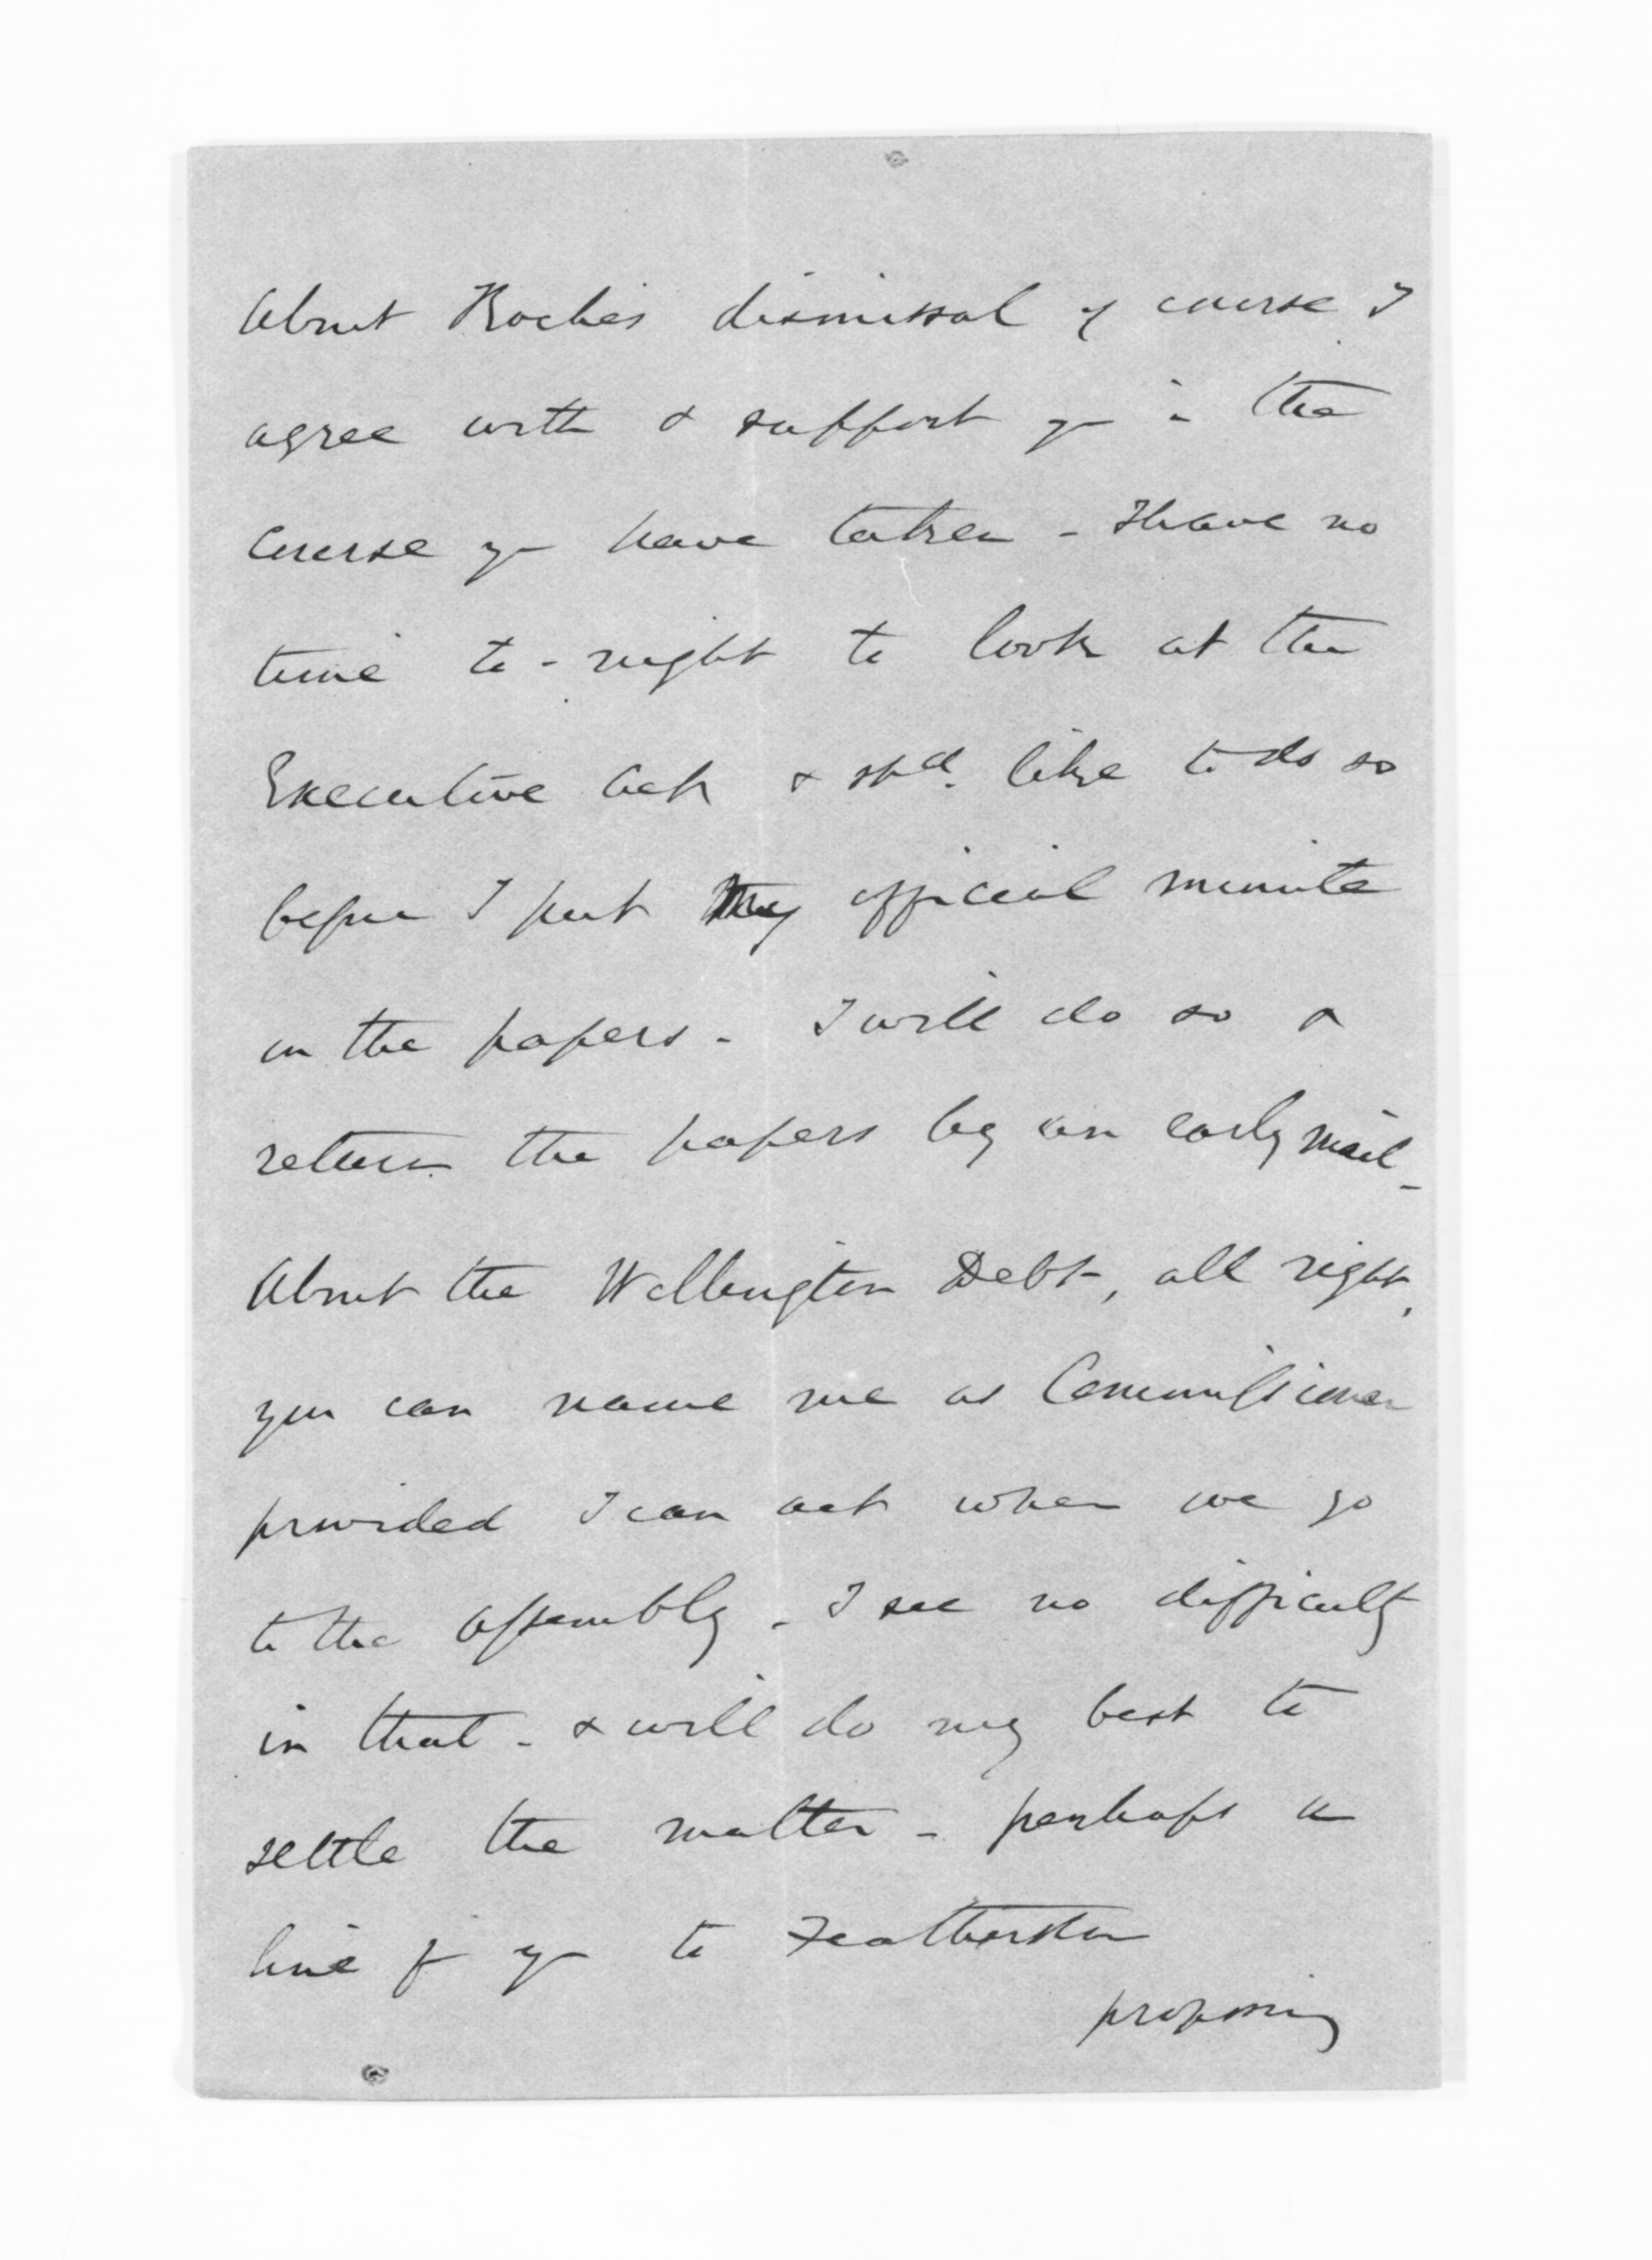 About Roche's dismissal of course I
agree with & support you in the
course you have taken - I have no
time to-night to look at the
Executive Act & shd. like to do so
before I put my official minute
on the papers - I will do so &
return the papers by an early mail -
About the Wellington Debt, all right,
you can name me as Commissioner
provided I can act when we go
to the Assembly - I see no difficulty
in that - & will do my best to
settle the matter - perhaps a
line fr you to Featherston
proposing